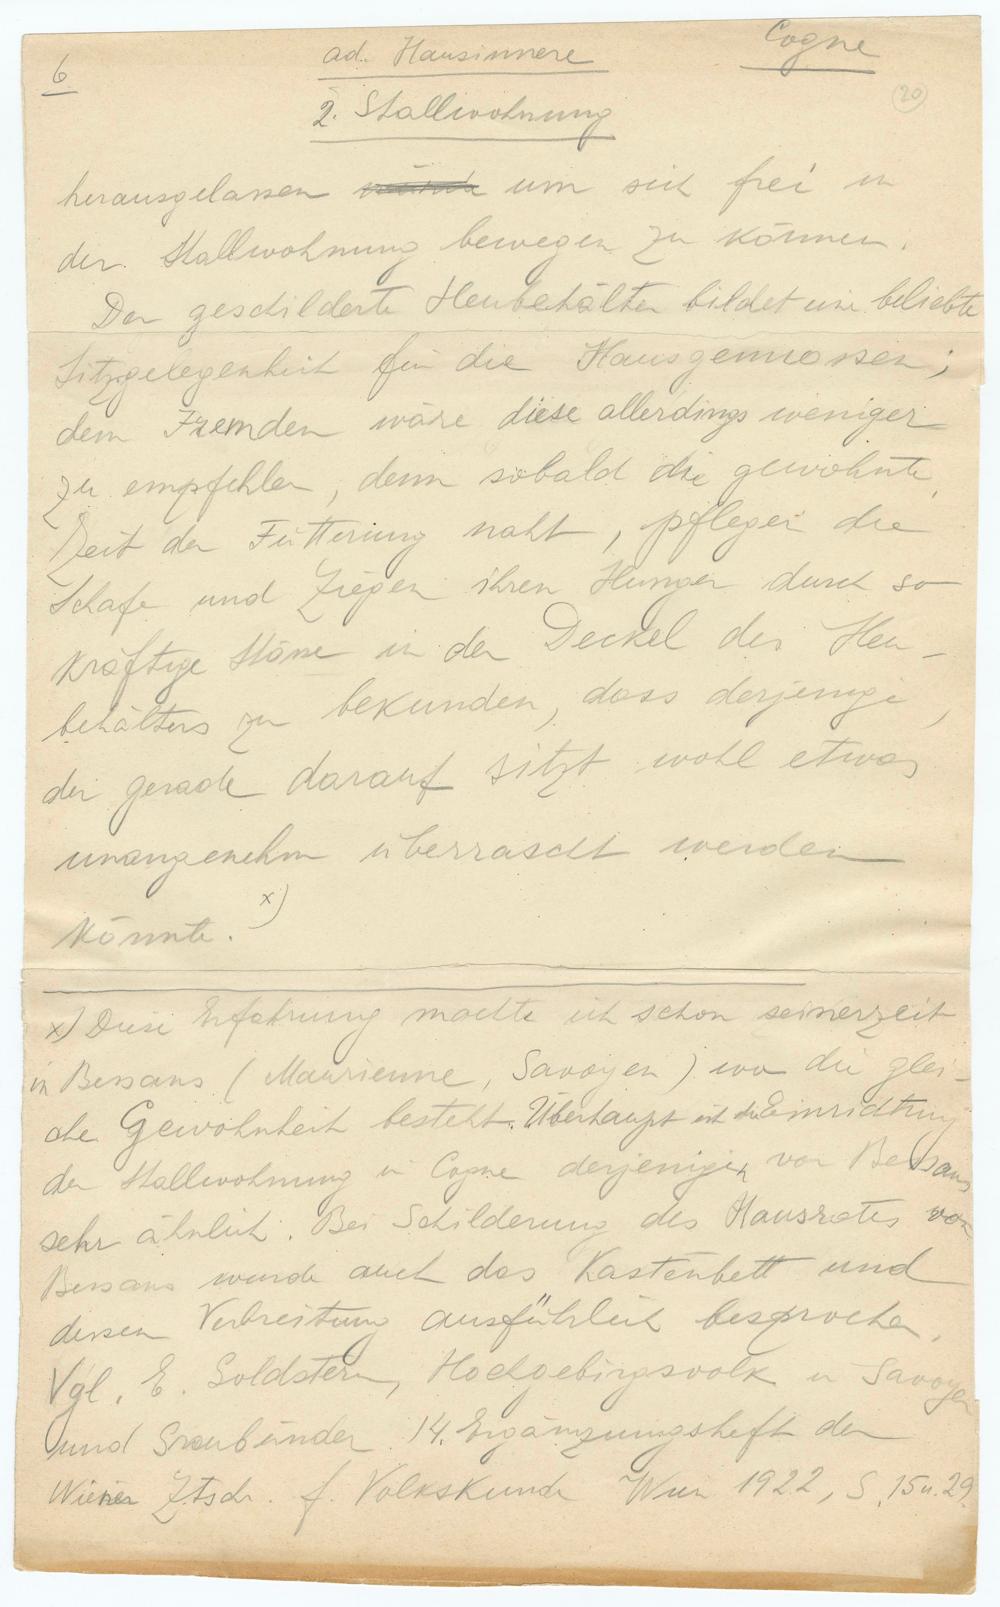 6
ad. Hausinnere
Cogne
20
2. Stallwohnung
herausgelassen um sich frei in
der Stallwohnung bewegen zu können.
Der geschilderte Heubehälter bildet eine beliebte
Sitzgelegenheit für die Hausgenossen;
dem Fremden wäre diese allerdings weniger
zu empfehlen, denn sobald die gewohnte
Zeit der Fütterung naht, pflegen die
Schafe und Ziegen ihren Hunger durch so
kräftige Stösse in den Deckel des Heu-
behälters zu bekunden, dass derjenige,
der gerade darauf sitzt wohl etwas
unangenehm überrascht werden
könnte. x)
x) Diese Erfahrung machte ich schon seinerzeit
in Bessans (Maurienne, Savoyen) wo die glei-
che Gewohnheit besteht. Überhaupt ist die Einrichtung
der Stallwohnung in Cogne derjenigen von Bessans
sehr ähnlich. Bei Schilderung des Hausrates von
Bessans wurde auch das Kastenbett und
dessen Verbreitung ausführlich besprochen.
Vgl. E. Goldstern, Hochgebirgsvolk in Savoyen
und Graubünden 14. Ergänzungsheft der
Wiener Ztschr. f. Volkskunde Wien 1922, S. 15 u. 29.